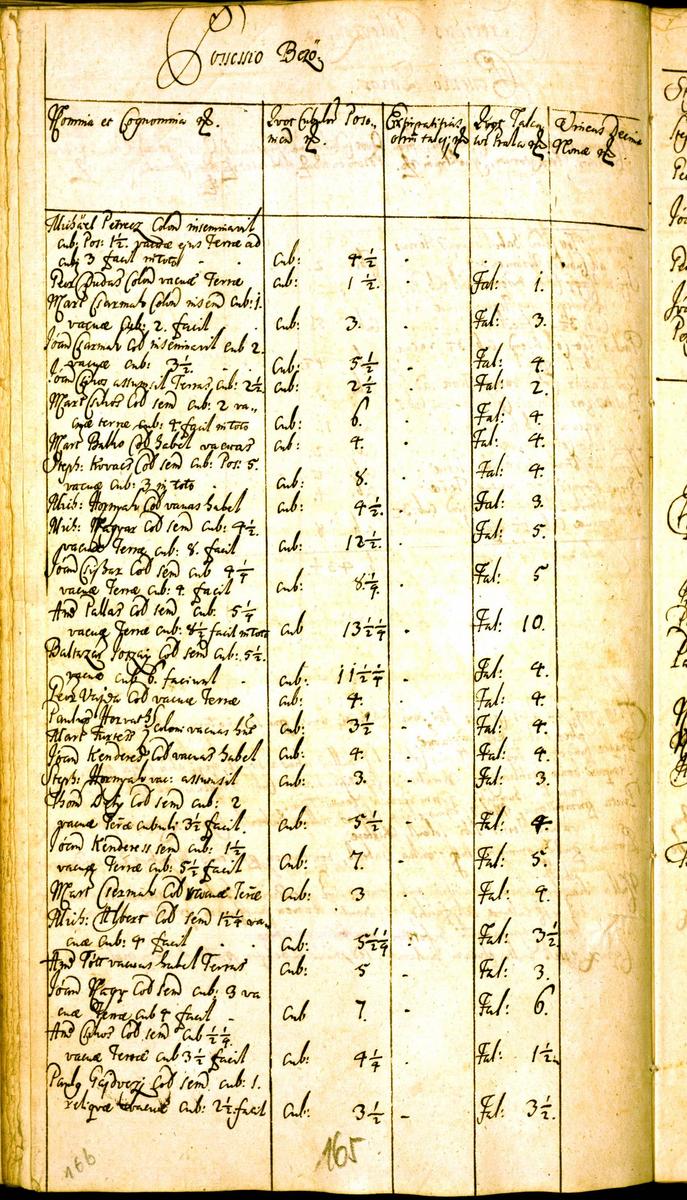 Possessio Bező
Nomina et Cognomina
Quot Cubulor Poso-
nien
Extirpatitias
Quot Falca-
Unicus Decima
Nonae
Michael Petrecz Colon inseminavit
cub: Pos: 1½. vacuae ejus Terrae ad
cub: 3 facit in toto - - cub: 4½ -
Petr Colon vacuae Terrae cub: 1½. - Fal: 1.
Mart Csarmah Colon insem cub: 1.
vacuae Cub: 2. facit cub: 3. - Fal: 3.
Joan Csarmah Col inseminavit cub 2.
vacuae cub: 3½. cub: 5½ - Fal: 4.
Joan assumsit Terras cub: 2½ cub: 2½ - Fal: 2.
Mart Col sem cub: 2 va-
cuae terrae cub: 4 facit in toto cub: 6. - Fal: 4.
Mart Col habet vacuas cub: 4. - Fal: 4.
Steph: Kovacs Col sem cub: Pos: 5.
vacuae cub: 3 in toto - cub: 8. - Fal: 4.
Mich: Hornyak Col vacuas habet cub: 4½. - Fal: 3.
Mich: Magyar Col sem cub: 4½.
vacuae Terrae cub: 8. facit cub: 12½. - Fal: 5.
Joan Col sem cub 4¼
vacuae Terrae cub: 4 facit cub: 8¼. - Fal: 5
And Pallas Col sem cub: 5¼
vacuae Terrae cub: 8½ facit in toto cub 13½¼ - Fal: 10.
Baltazar Col sem cub: 5½.
vacuae cub: 6. faciunt - cub: 11½¼ - Fal: 4.
Petr Vajda Col vacuae Terrae cub: 4. - Fal: 4.
Paulus Horvath
Mart Coloni vacuas cub: 3½ - Fal: 4.
Joan Kenderes Col vacuas habet cub: 4. - Fal: 4.
Steph: Hornyak vac: assumsit cub: 3. - Fal: 3.
Thom Col sem cub: 2
vacuae Terrae cubuli 3½ facit. cub: 5½ - Fal: 4.
Joan Kenderess sem cub: 1½
vacuae Terrae cub: 5½ facit cub: 7. - Fal: 5.
Mart Csermak Col vacuae Terrae cub: 3 - Fal: 4.
Mich: Albert Col sem 1½¼ va-
cuae cub: 4 facit - - cub: 5½¼ - Fal: 3½.
And Tott vacuas habet Terras cub: 5 - Fal: 3.
Joan Nagy Col sem cub: 3 va
cuae Terrae cub 4 facit - cub 7. - Fal: 6.
And Col sem cub ½¼.
vacuae Terrae cub 3½ facit cub: 4¼ - Fal: 1½.
Paulg Col sem cub: 1.
reliquae vacuae cub: 2½ facit cub: 3½ - Fal: 3½.
166
165